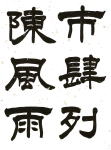 市肆列
陳風雨